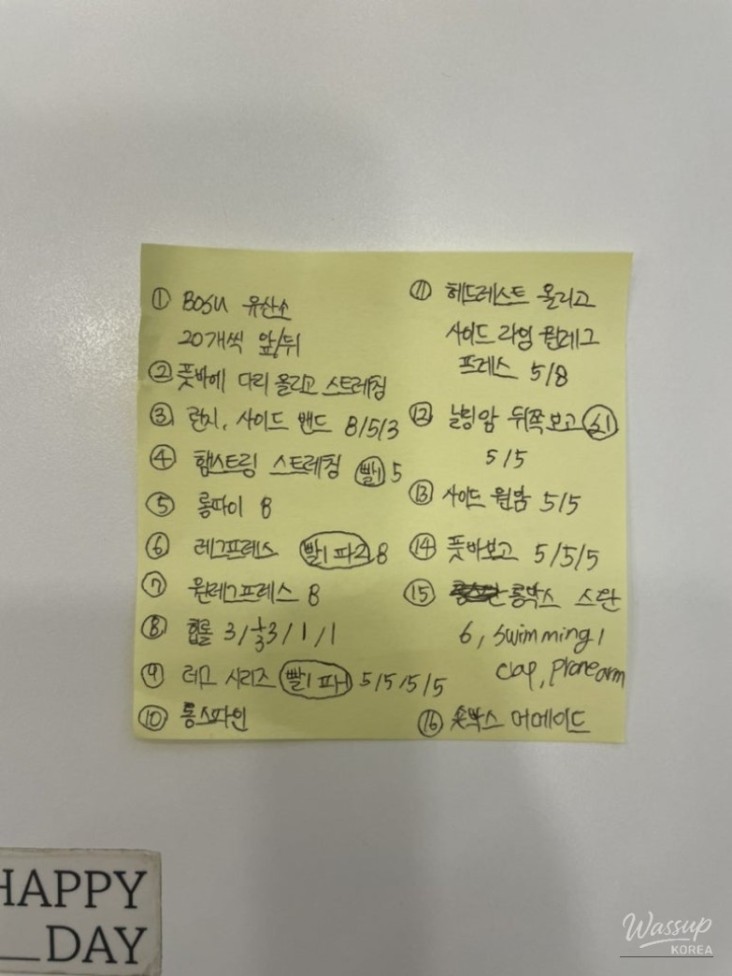 ① BOSU 유산소
20개씩 앞/뒤
② 풋바에 다리 올리고 스트레칭
③ 런지, 사이드 밴드 8/5/3
④ 햄스트링 스트레칭 빨1 5
⑤ 롱파이 8
⑥ 레그프레스 빨1 파2 8
⑦ 원레그프레스 8
⑧ 힙롤 3/3/1/1
⑨ 레그 시리즈 빨1 파1 5/5/5/5
⑩ 롱스파인
⑪ 헤드레스트 올리고
사이드 라잉 원레그
프레스 5/8
⑫ 닐링암 뒤쪽보고
5/5
⑬ 사이드 원암 5/5
⑭ 풋바보고 5/5/5
⑮ 롱박스 스완
6, swimming 1
clap, prone arm
⑯ 숏박스 머메이드
HAPPY
DAY
Wassup
KOREA